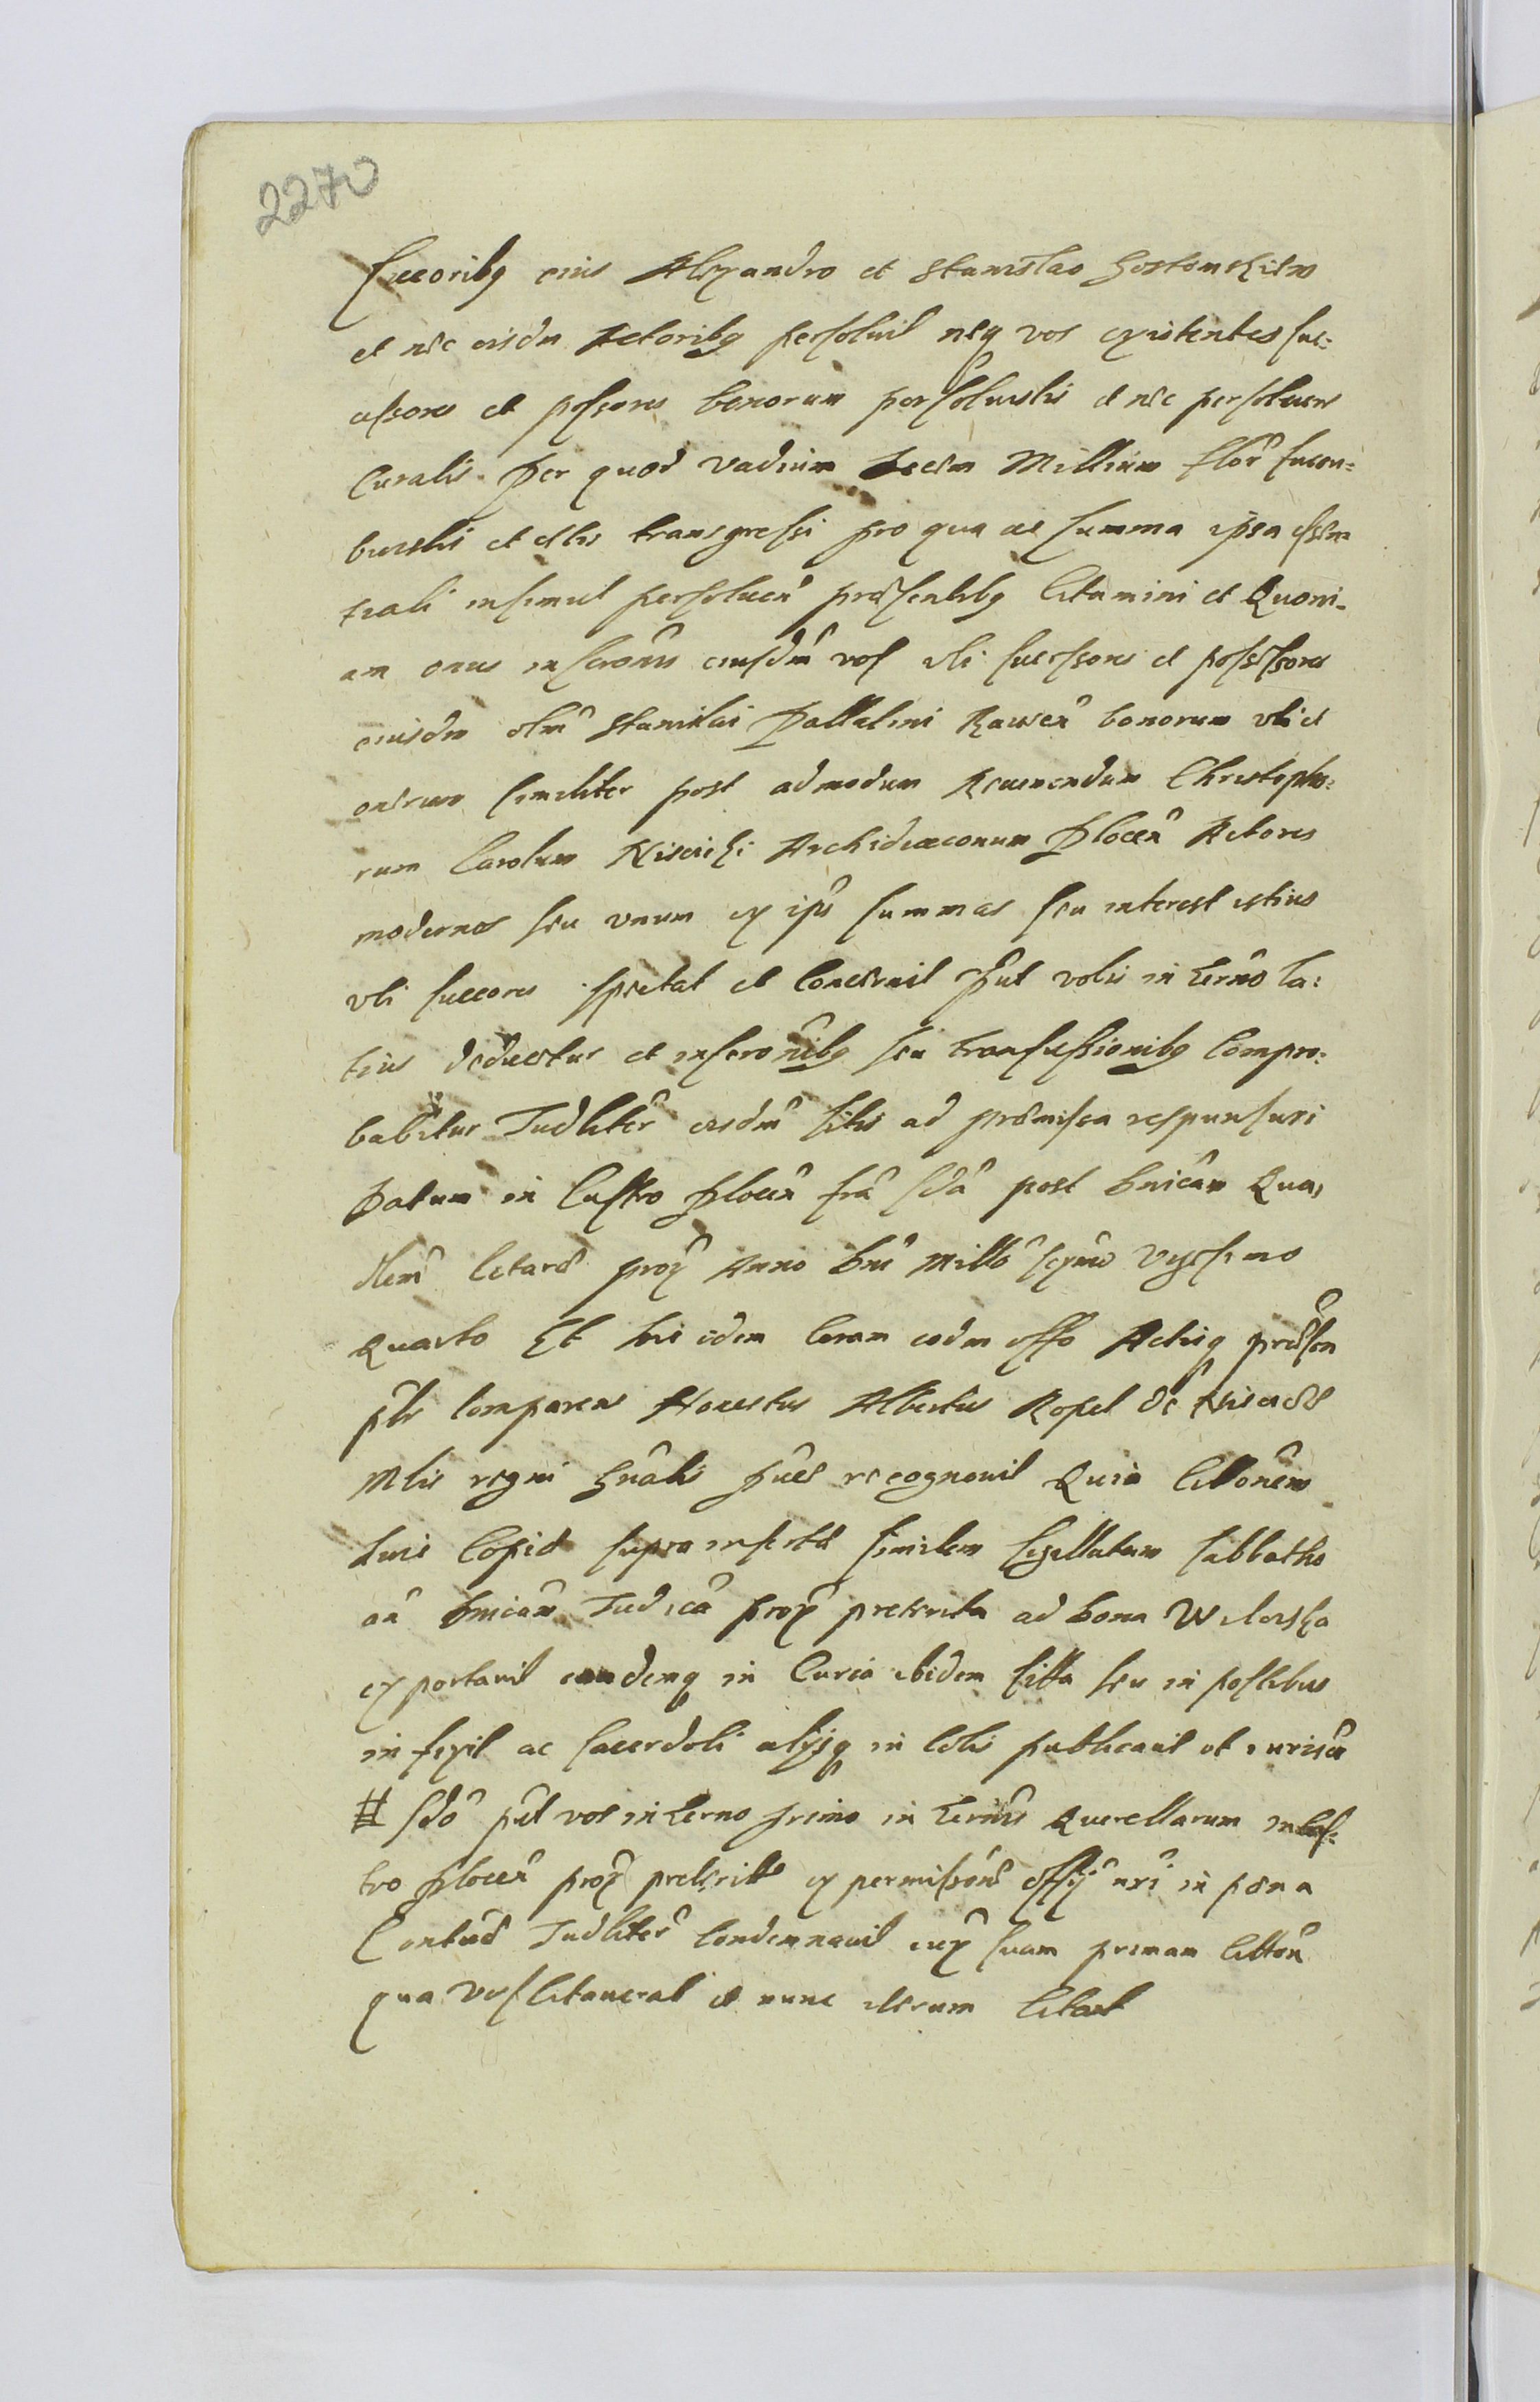 2270
Succoribq eius Alexandro et Stanislao Gostomskiem
et nec eisdem Actoribq persoluit neq vos existentes suc:
cessores et possores bonorum persoluistis et nec persoluere
Curatis Per quod vadium Decem Millium flor succu:
buistis et estis transgressi pro qua ac summa ipsa essen:
tiali insimul persoluen praesentibq Citamini et Quoni:
am onus inscronis eiusdem vos uti successores et possessores
eiusdem olim Stanislai Pallatini Rawen bonorum vti et
onerum similiter post admodum Reuerendum Christopho:
rum Carolum Niscicki Archidiaconum Plocen Actores
modernos seu vnum ex ipis summas seu interest istius
vti succores spectat et Concernit Put vobis in termo la:
tius deducetur et inscronibq seu transfussionibq Compro:
babitur Judliter eisdem sitis ad praemissa responsuri
Datum in Castro Plocen fra sda post Dnicam Qua,
dlem letare prox Anno Dni Millo sexmo vigesimo
Quarto Et hic idem Coram eodem offo Actisq praesen
plr Comparens Honestus Albertus Kopel de
Mtis regni Gnalis recognouit Quia Cittonem
huic Copiae supra insertae similem sigillatam sabbatho
an Dnicam Judica prox preterita ad bona
exportauit eandemq in Curia ibidem sitta seu in postibus
infixit ac sacerdoti alijsq in Colis publicauit et
# sdo put vos in termo primo in termis Querellarum in Cas:
tro Plocen prox preterite ex permissione offij nri in poena
Contum Judliter Condemnauit iux suam primam Citton
qua vos Citauerat et nunc iterum Citat